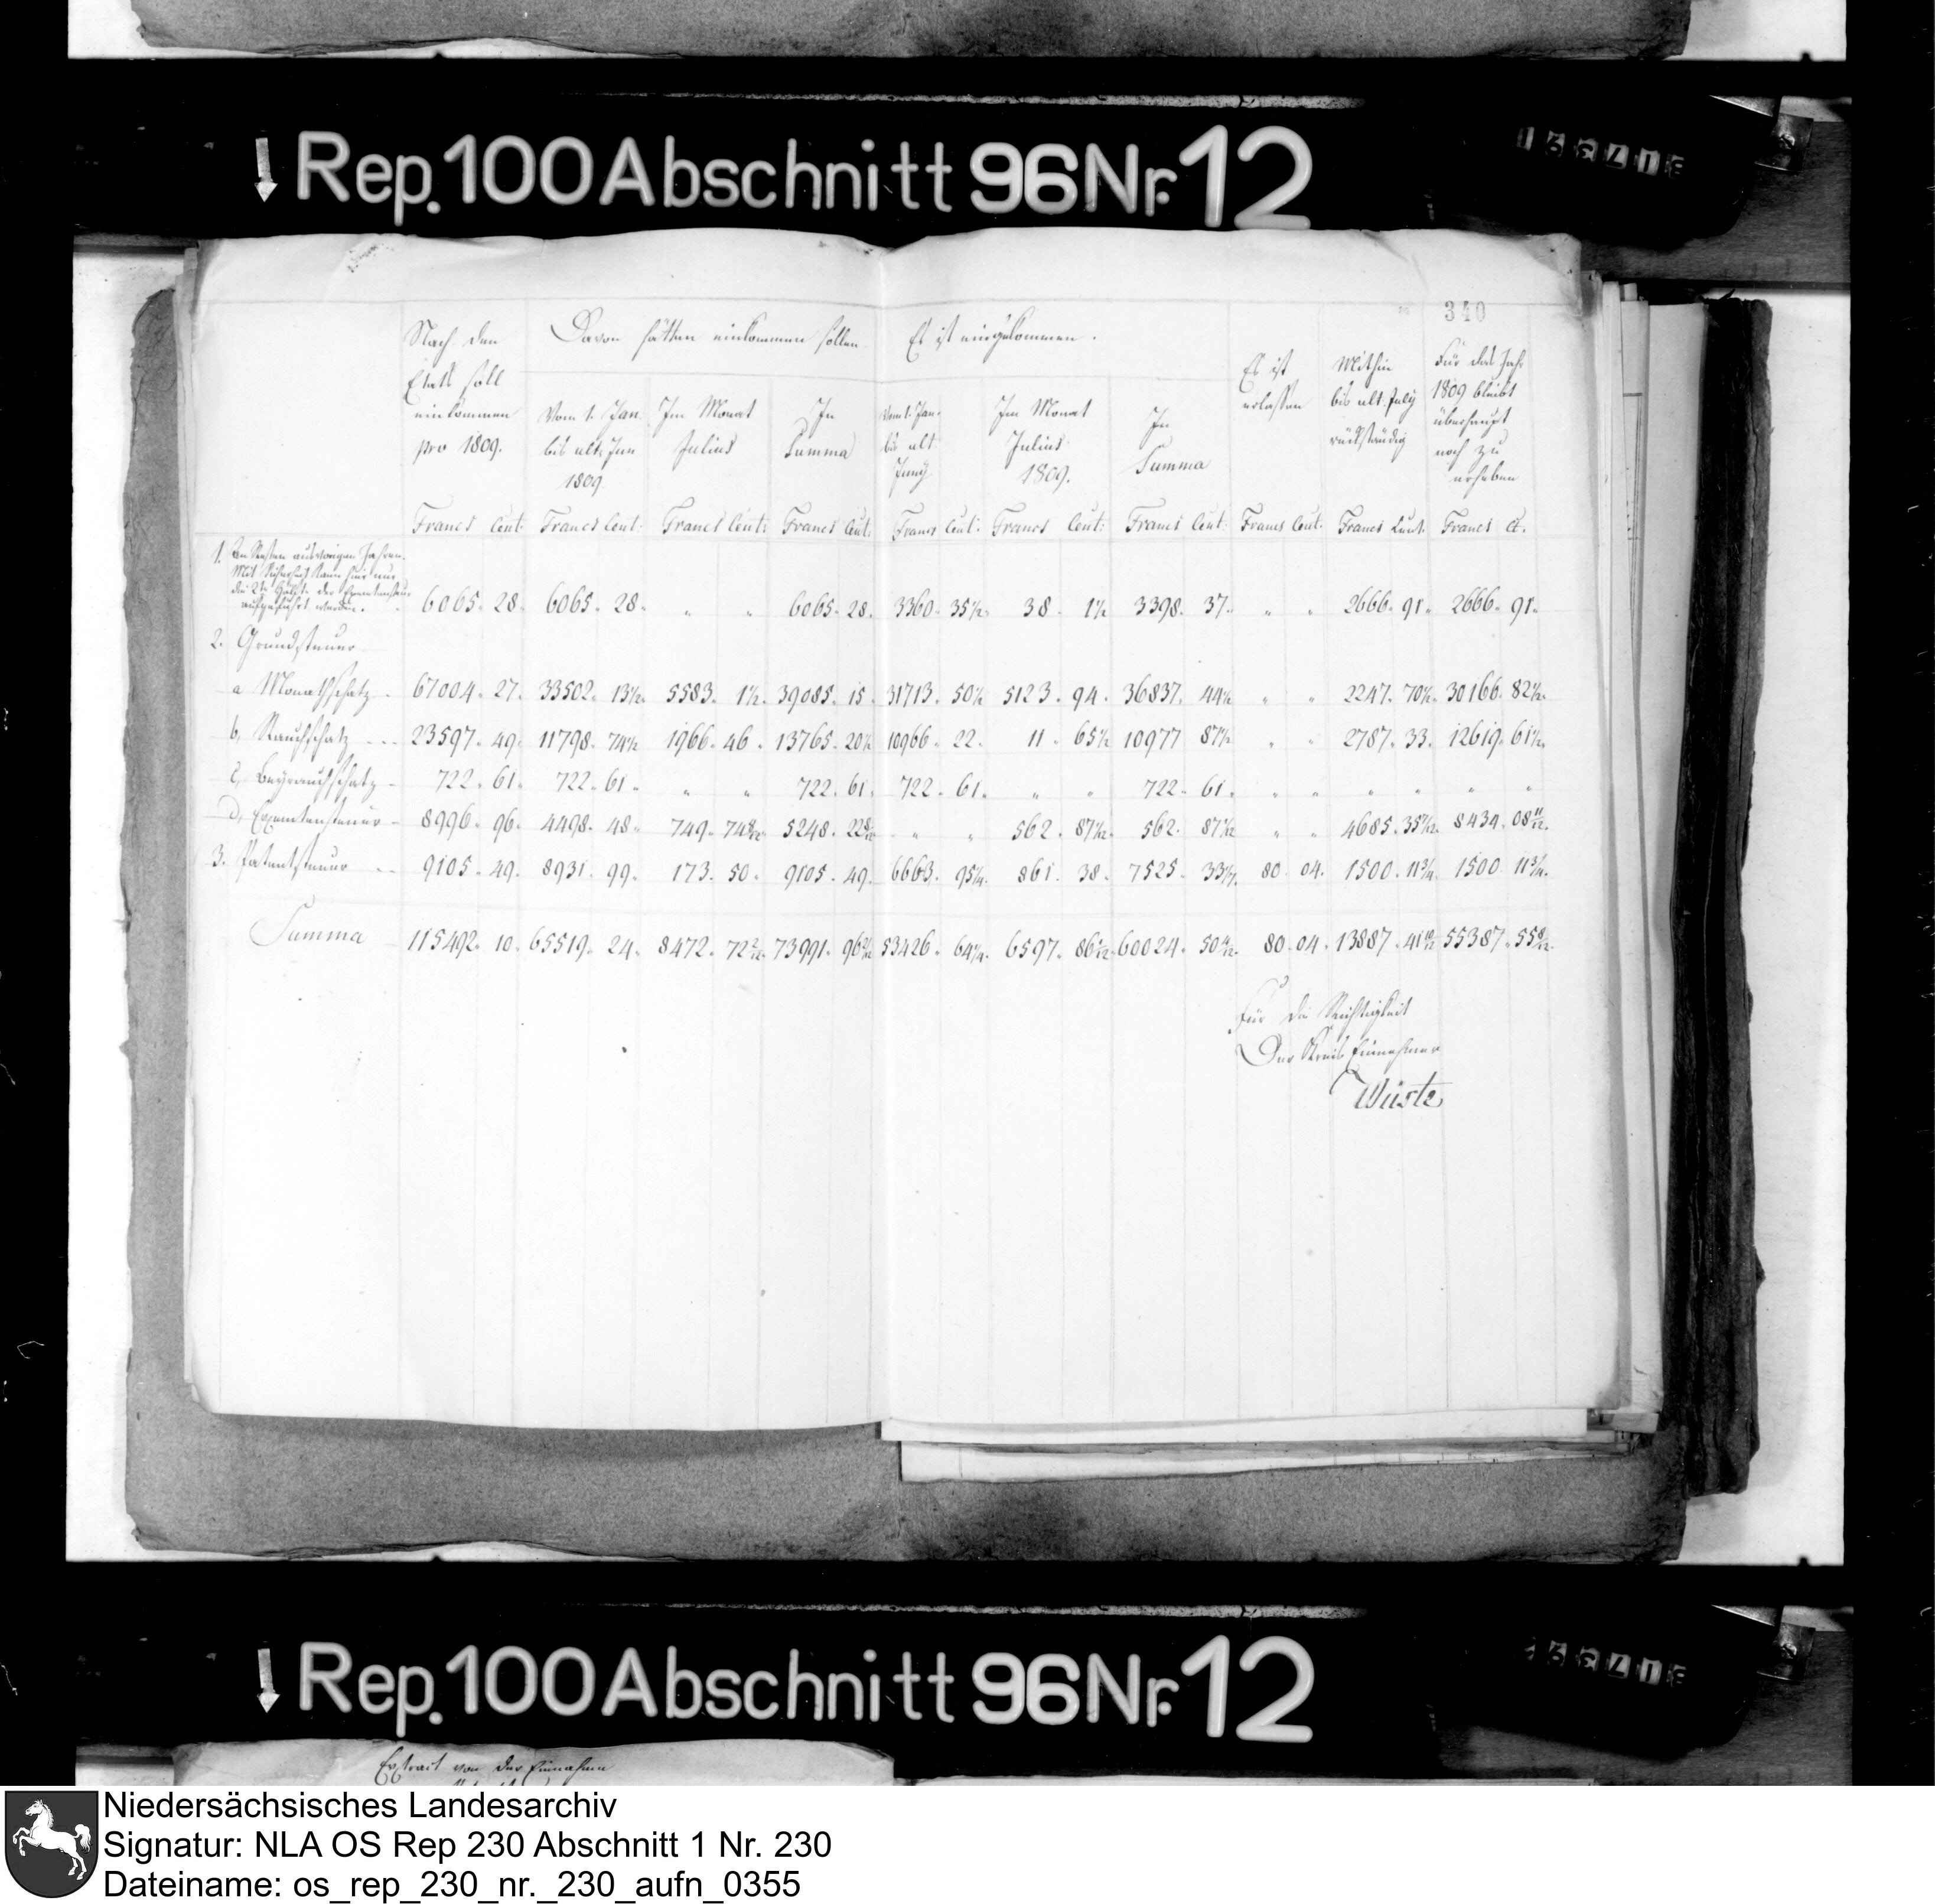 Rep. 100 Abschnitt 96 Nr. 12
340
Nach den Etats soll einkommen pro 1809.
Davon hätten einkommen sollen
Vom 1. Jan. bis ult. Jun 1809
Im Monat Julius
In Summa
Es ist eingekommen.
Vom 1. Jan. bis ult Juny
Im Monat Julius 1809.
In Summa
Es ist erlassen
Mithin bis ult. July rückständig
Für das Jahr 1809 bleibt überhaupt noch zu erheben
Francs Cent: Francs Cent: Francs Cent: Francs Cent: Francs Cent: Francs Cent: Francs Cent: Francs Cent: Francs Cent: Francs Ct.
1. An Resten aus vorigen Jahren.
Mit Sicherheit kann hier nur
die 2te Hälfte der Exemtensteuer
aufgeführt werden. 6065. 28. 6065. 28. " " 6065. 28. 3360. 35½. 38. 1½ 3398. 37. " " 2666. 91. 2666. 91.
2. Grundsteuer
a Monathschatz. 67004. 27. 33502. 13½. 5583. 1½. 39085. 15. 31713. 50½ 5123. 94. 36837. 44½ " " 2247. 70½. 30166. 82½.
b, Rauchschatz 23597. 49. 11798. 74½ 1966. 46. 13765. 20½ 10966. 22. 11. 65½ 10977 87½ " " 2787. 33. 12619. 61½.
c, Beyrauchschatz 722. 61. 722. 61. " " 722. 61. 722. 61. " " 722. 61. " " " " " "
d, Exemtensteuer 8996. 96. 4498. 48. 749. 74 8/12 5248. 22 8/12 " " 562. 87 1/12. 562. 87 1/12 " " 4685. 35 7/12. 8434. 08 11/12.
3. Patentsteuer 9105. 49. 8931. 99. 173. 50. 9105. 49. 6663. 95¼. 861. 38. 7525. 33¼. 80 04. 1500. 11¾. 1500 11¾.
Summa 115492. 10. 65519. 24. 8472. 72 2/12. 73991. 96 2/12 53426. 64¼. 6597. 86 2/12. 60024. 50 4/12. 80. 04. 13887. 41 10/12 55387. 55 8/12.
Für die Richtigkeit
Der Kreis Einnehmer
Wüste
Rep. 100 Abschnitt 96 Nr. 12
Extrait von der Einnahme
Niedersächsisches Landesarchiv
Signatur: NLA OS Rep 230 Abschnitt 1 Nr. 230
Dateiname: os_rep_230_nr._230_aufn_0355